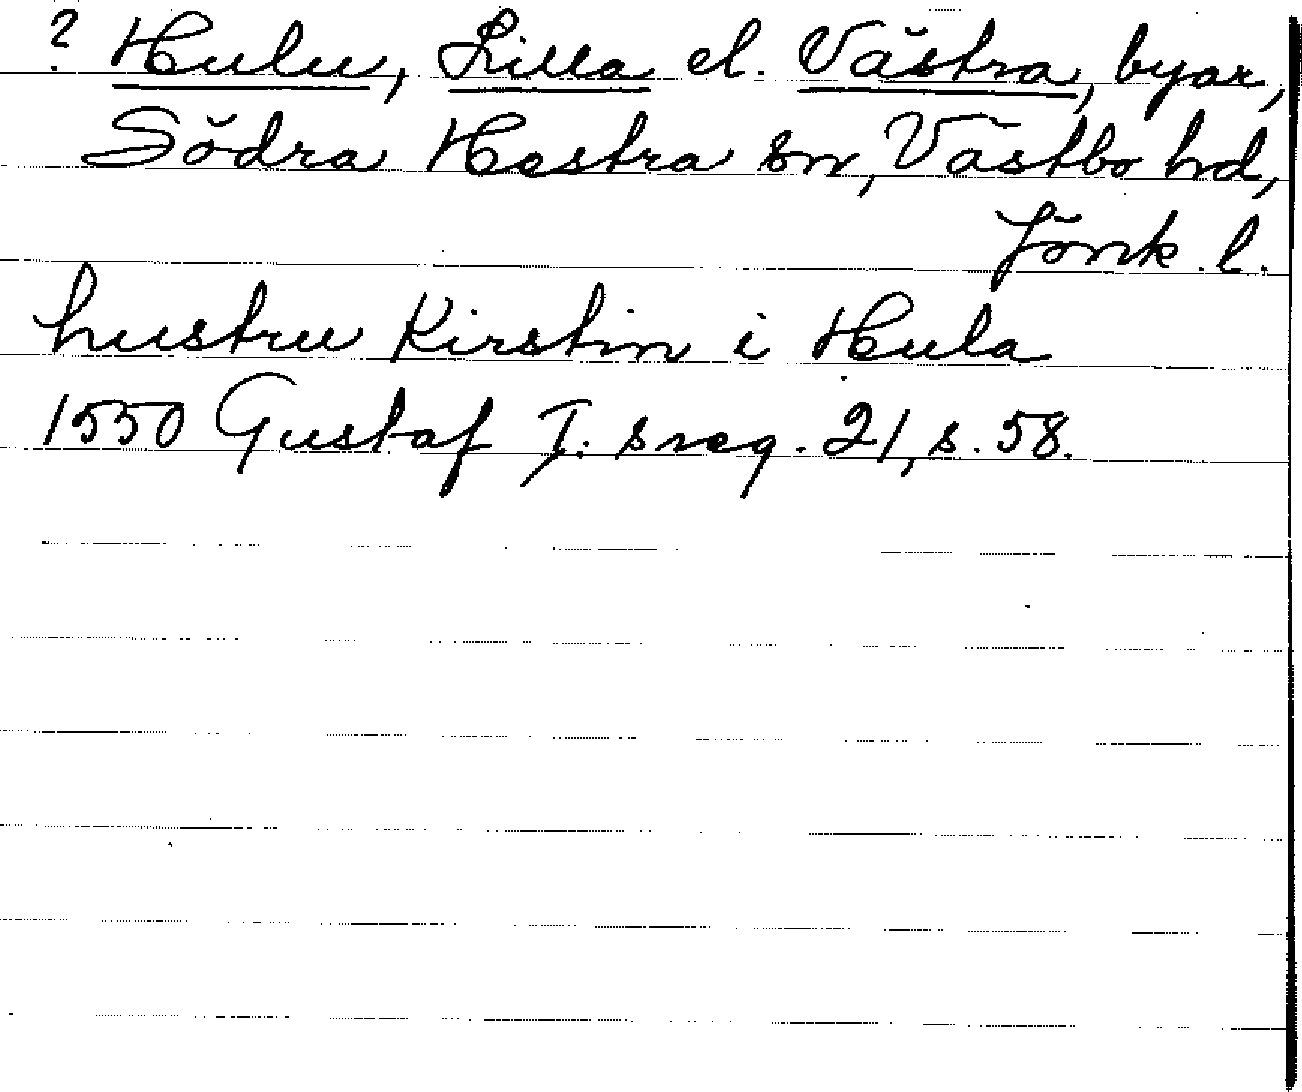 ? Hulu, Lilla el. Västra, byar,
Södra Hestra sn, Västbo hd,
Jönk. l.
hustru Kirstin i Hula
1550 Gustaf I: s reg. 21, s. 58.